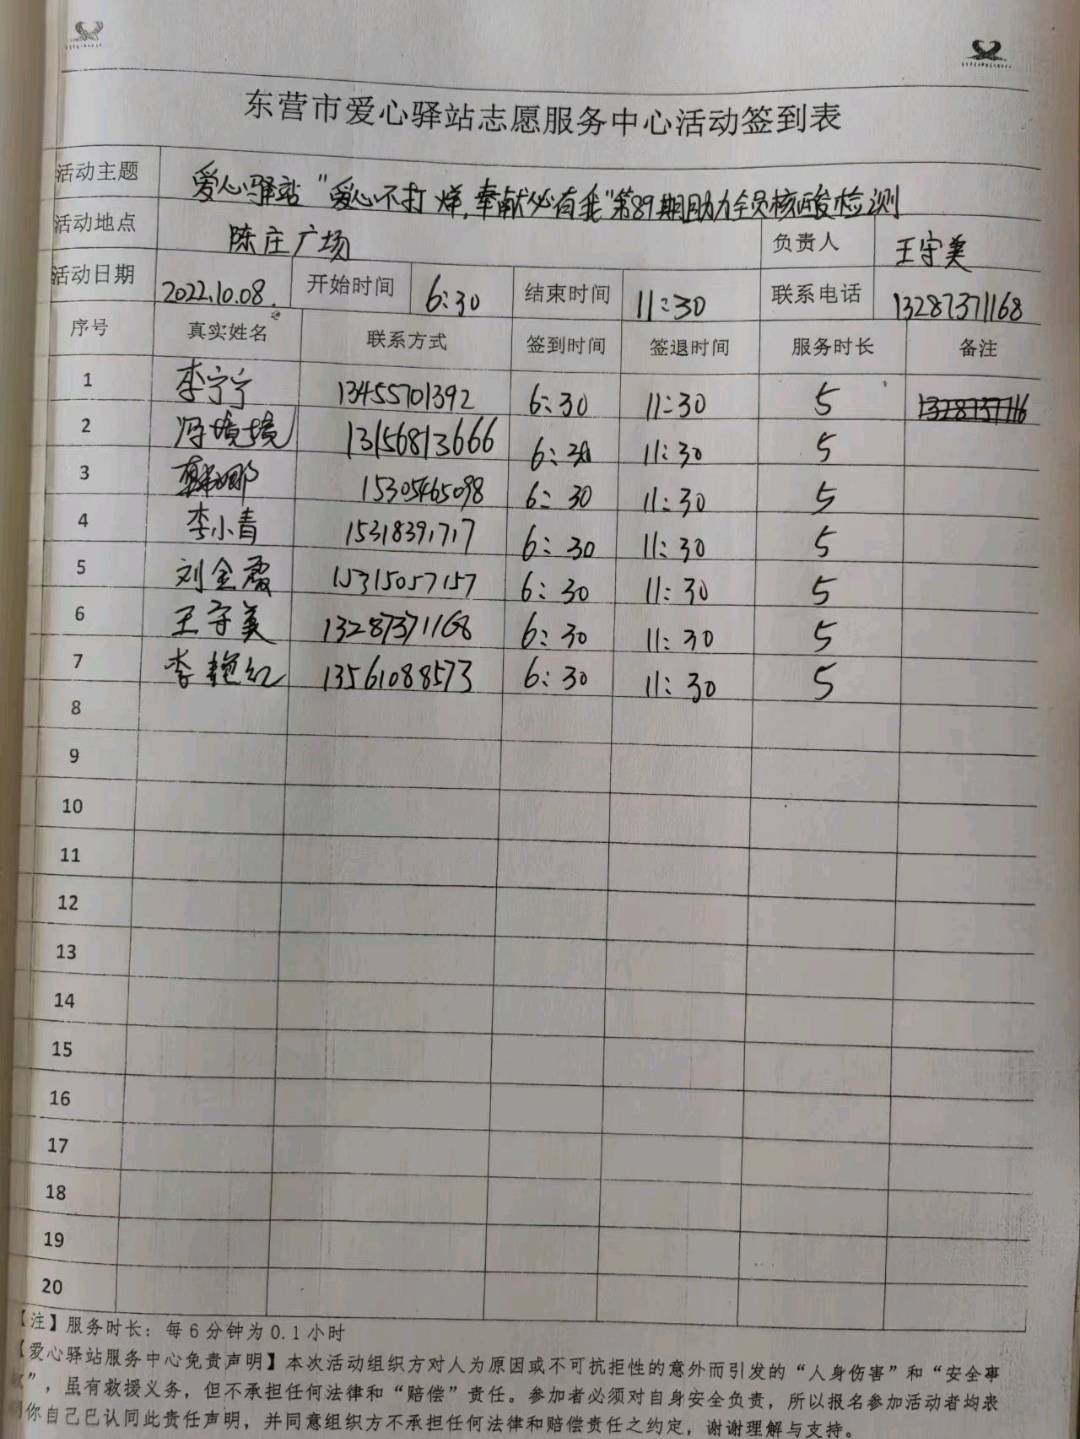 东营市爱心驿站志愿服务中心活动签到表
活动主题 爱心驿站“爱心不打烊,奉献必有我”第89期助力全员核酸检测
活动地点 陈庄广场 负责人 王守美
活动日期 2022.10.08. 开始时间 6:30 结束时间 11:30 联系电话 13287371168
序号 真实姓名 联系方式 签到时间 签退时间 服务时长 备注
1 李宁宁 13455701392 6:30 11:30 5
2 冯境境 13156813666 6:30 11:30 5
3 15305465098 6:30 11:30 5
4 李小青 15318391717 6:30 11:30 5
5 刘金霞 15315057157 6:30 11:30 5
6 王守美 13287371168 6:30 11:30 5
7 李艳红 13561088573 6:30 11:30 5
8
9
10
11
12
13
14
15
16
17
18
19
20
【注】服务时长:每6分钟为0.1小时
【爱心驿站服务中心免责声明】本次活动组织方对人为原因或不可抗拒性的意外而引发的“人身伤害”和“安全事
”,虽有救援义务,但不承担任何法律和“赔偿”责任。参加者必须对自身安全负责,所以报名参加活动者均表
你自己已认同此责任声明,并同意组织方不承担任何法律和赔偿责任之约定,谢谢理解与支持。